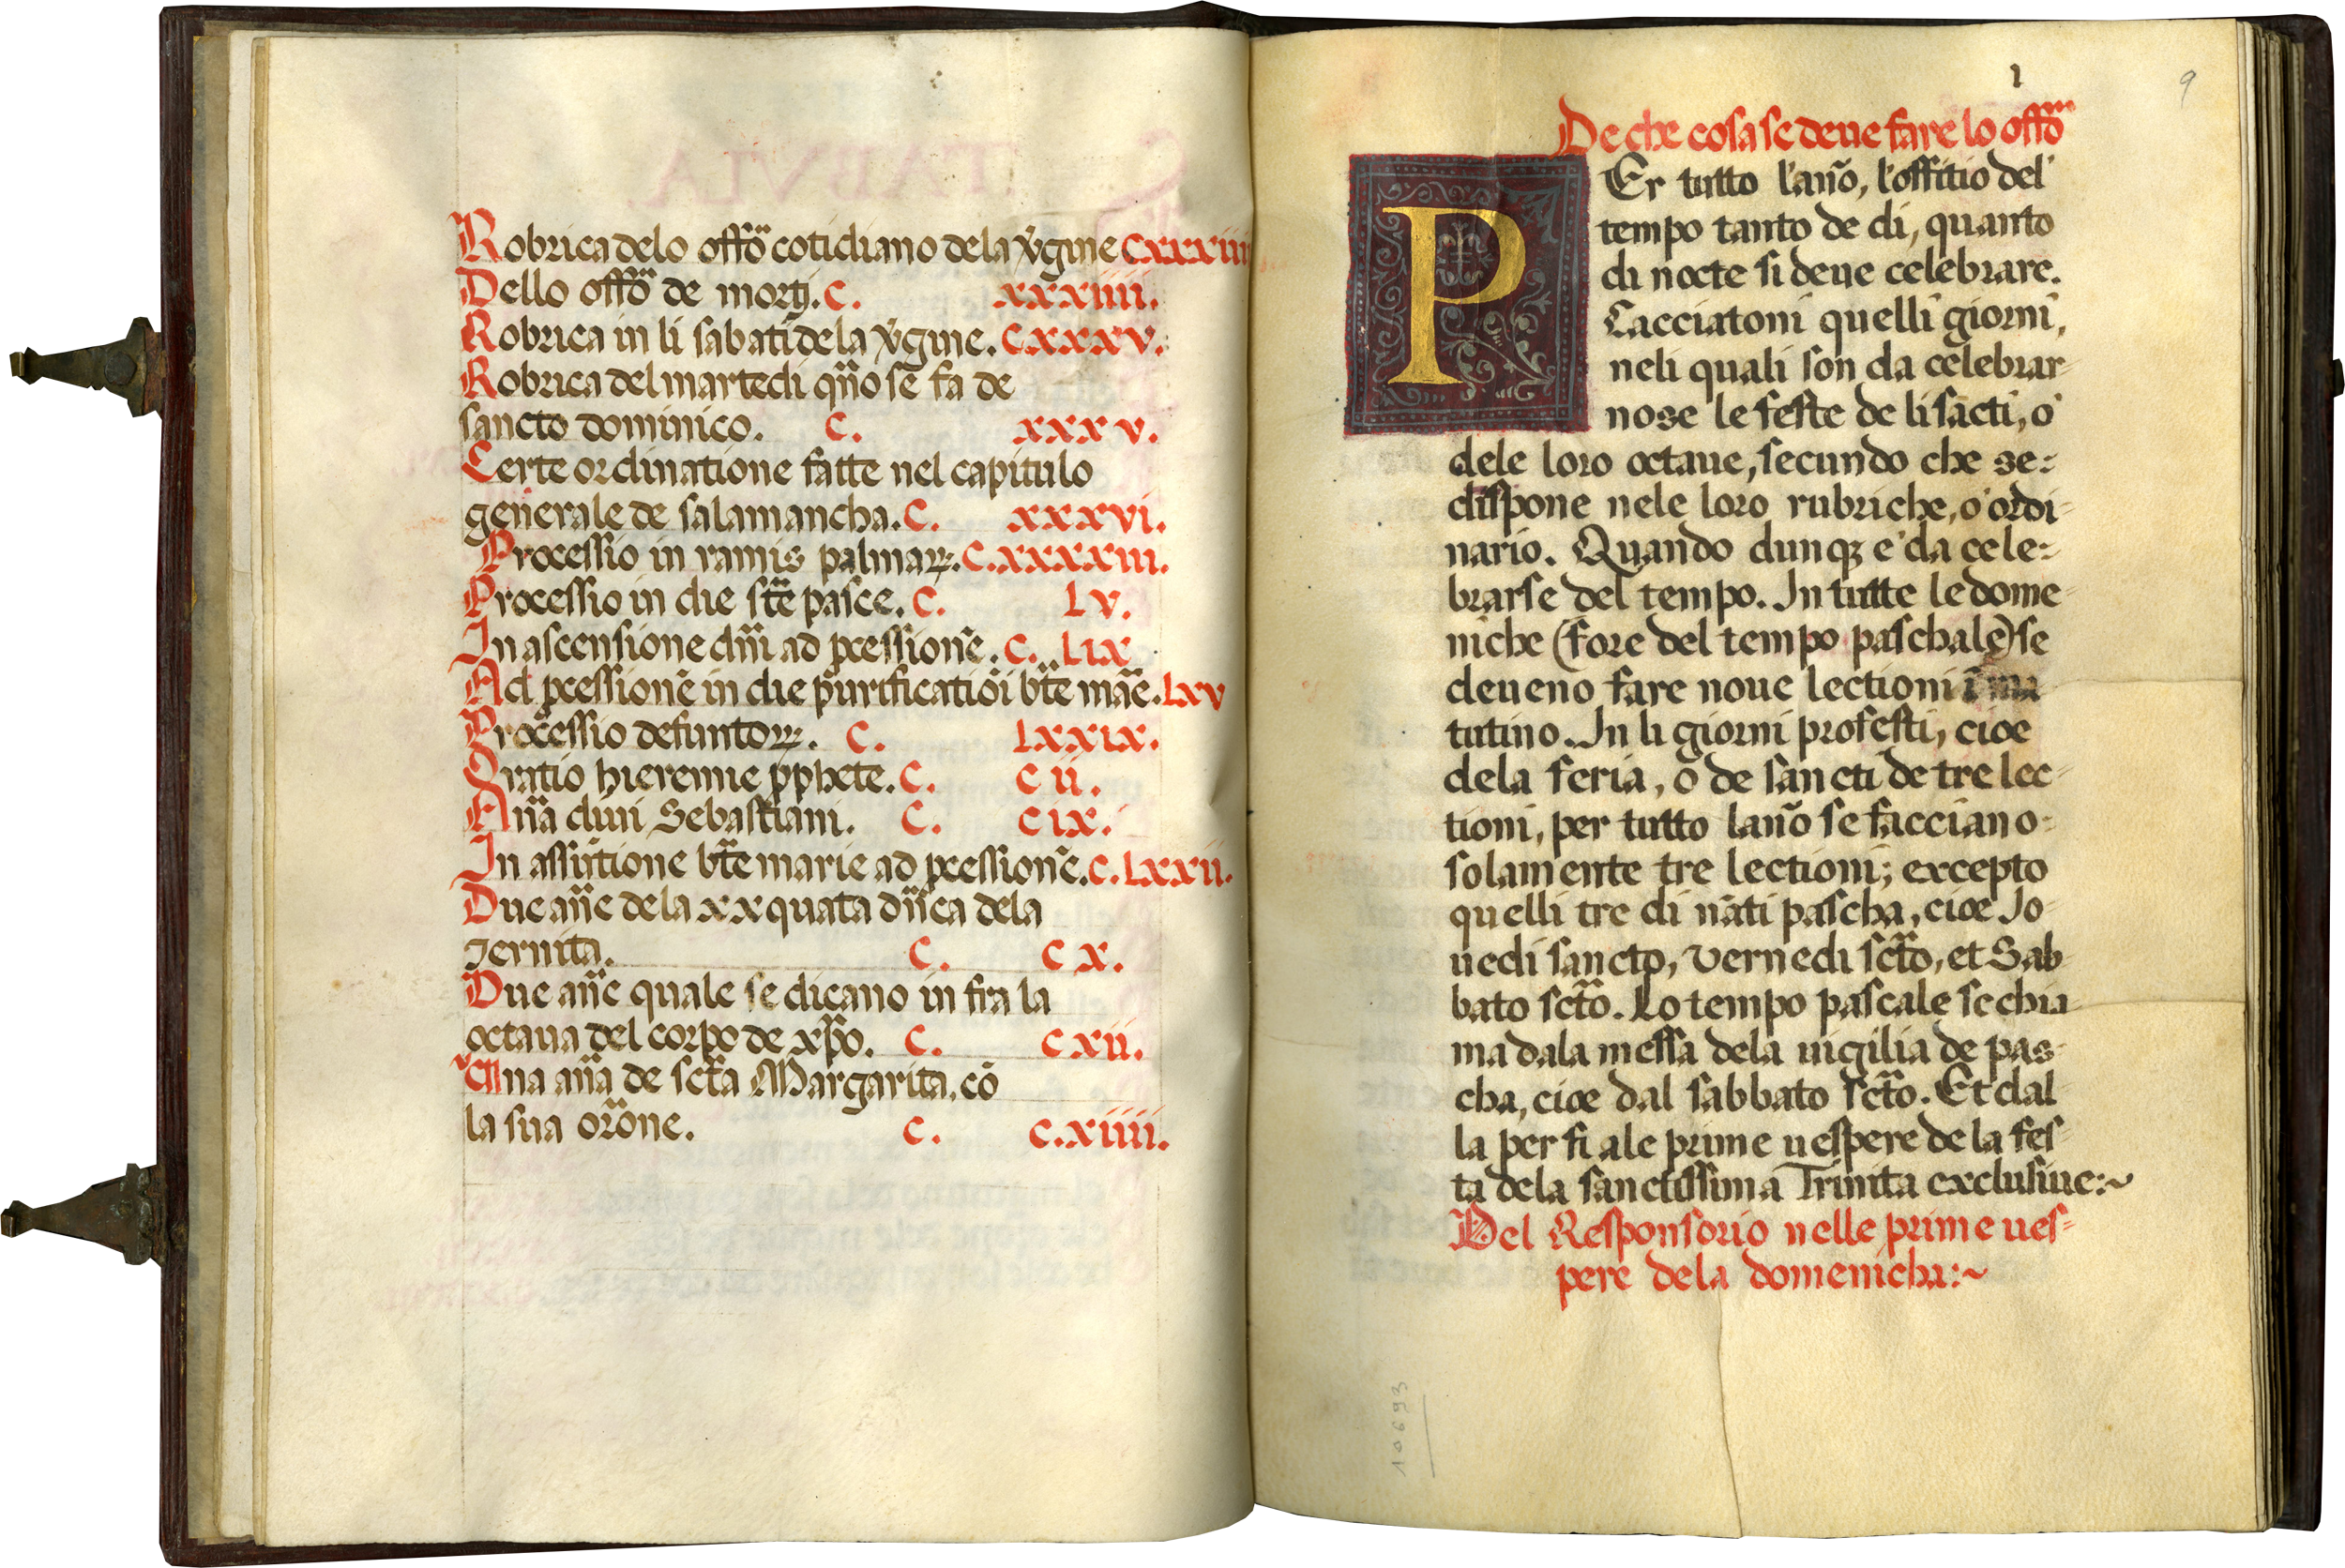 Robrica delo offõ cotidiano dela v̄gine Cxxxiiii
Dello offõ de mortj. C. xxxiiii.
Robrica in li sabati dela v̄gine. C xxxv.
Robrica del martedi qño se fa de
sancto dominico. C. xxxv.
Certe ordinatione fatte nel capitulo
generale de salamancha. C. xxxvi.
Processio in ramis palmaꝝ. C. xxxxiii.
Processio in die st̄e pasce. C. Lv.
In ascensione dñi ad ꝓcessionē. C. Lix
Ad ꝓcessionē in die purificatiōi bt̄e maē. Lxv
Processio defuntoꝝ. C. Lxxix.
Oratio hieremie ꝓphete. C. C ii.
Añā diui Sebastiani. C. C ix.
In assūtione bt̄e marie ad ꝓcessionē. C. Lxxii.
Due añe dela xx quata dñica dela
Ternita. C. C x.
Due añe quale se dicano in fra la
octaua del corpo de xp̄o. C. C xii.
Una aña de sct̄a Margarita, cō
la sua orōne. C. C. xiiii.
1
9
De che cosa se deue fare lo offõ
PEr tutto l'año, l'offitio del
tempo tanto de di, quanto
di nocte si deue celebrare.
Cacciatoni quelli giorni,
neli quali son da celebrar
nose le feste de li sācti, o
dele loro octaue, secundo che se:
dispone nele loro rubriche, o ordi-
nario. Quando dunqꝫ e' da cele:
brarse del tempo. In tutte le dome
niche (fore del tempo paschale) se
deueno fare noue lectioni ī ma
tutino. In li giorni profesti, cioe
dela feria, o de sancti de tre lec
tioni, per tutto laño se facciano
solamente tre lectioni; excepto
quelli tre di nāti pascha, cioe Jo
uedi sancto, Vernedi sct̄o, et Sab
bato sct̄o. Lo tempo pascale se chia
ma dala messa dela uigilia de pas
cha, cioe dal sabbato sct̄o. Et dal
la per fi ale prime uespere de la fes
ta dela sanctissima Trinita exclusiue:~
Del Responsorio nelle prime ues=
pere dela domenicha:~
10693